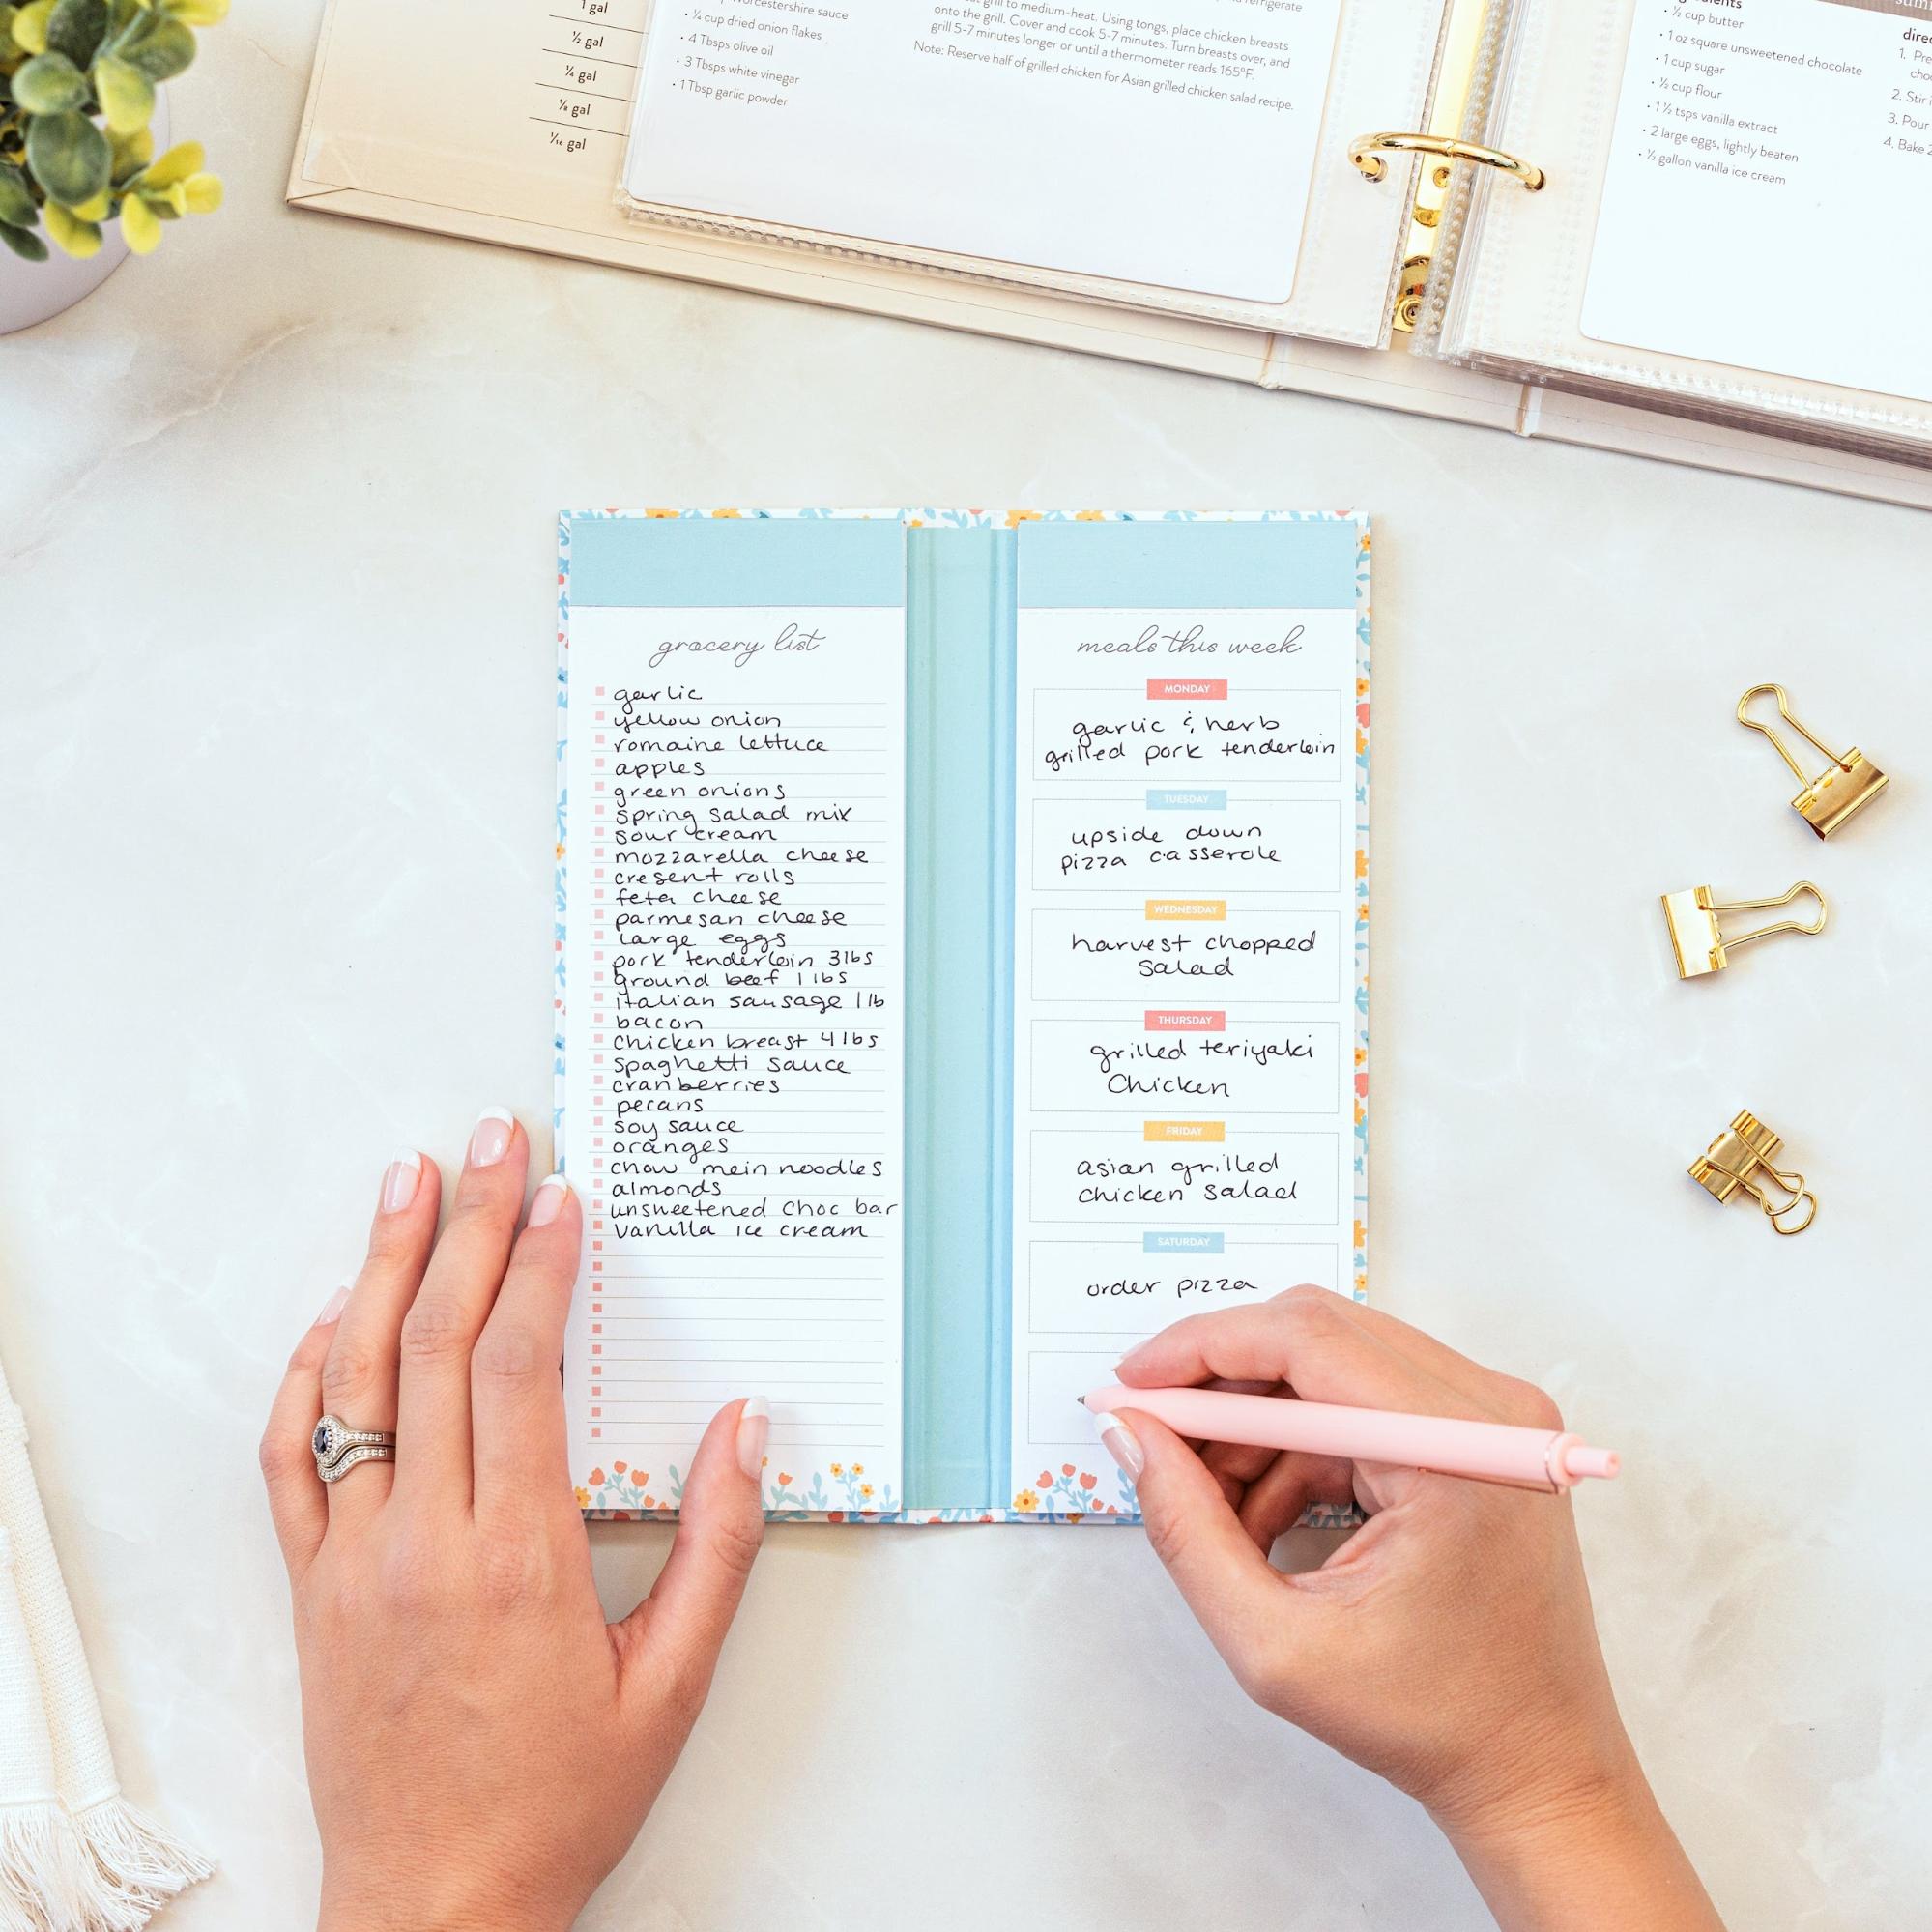 1 gal
½ gal
¼ gal
⅛ gal
¹⁄₁₆ gal
Worcestershire sauce
• ¼ cup dried onion flakes
• 4 Tbsps olive oil
• 3 Tbsps white vinegar
• 1 Tbsp garlic powder
refrigerate
grill to medium-heat. Using tongs, place chicken breasts
onto the grill. Cover and cook 5-7 minutes. Turn breasts over, and
grill 5-7 minutes longer or until a thermometer reads 165°F.
Note: Reserve half of grilled chicken for Asian grilled chicken salad recipe.
• ½ cup butter
• 1 oz square unsweetened chocolate
• 1 cup sugar
• ½ cup flour
• 1 ½ tsps vanilla extract
• 2 large eggs, lightly beaten
• ½ gallon vanilla ice cream
direc
1. Pre
choc
2. Stir i
3. Pour
4. Bake 2
grocery list
garlic
yellow onion
romaine lettuce
apples
green onions
spring salad mix
sour cream
mozzarella cheese
cresent rolls
feta cheese
parmesan cheese
large eggs
pork tenderloin 3lbs
ground beef 1 lbs
italian sausage 1 lb
bacon
chicken breast 4 lbs
spaghetti sauce
cranberries
pecans
soy sauce
oranges
chow mein noodles
almonds
unsweetened choc bar
vanilla ice cream
meals this week
MONDAY
garlic & herb
grilled pork tenderloin
TUESDAY
upside down
pizza casserole
WEDNESDAY
harvest chopped
salad
THURSDAY
grilled teriyaki
Chicken
FRIDAY
asian grilled
chicken salad
SATURDAY
order pizza